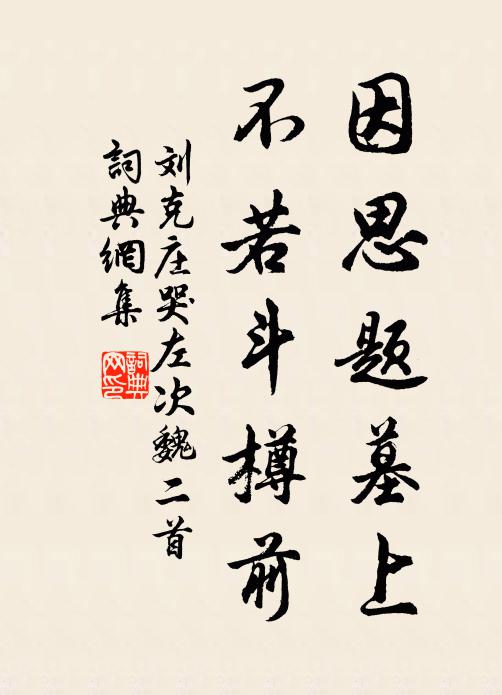 因思题墓上
不若斗樽前
刘克庄哭左次魏二首
詞典網集
詞典網印